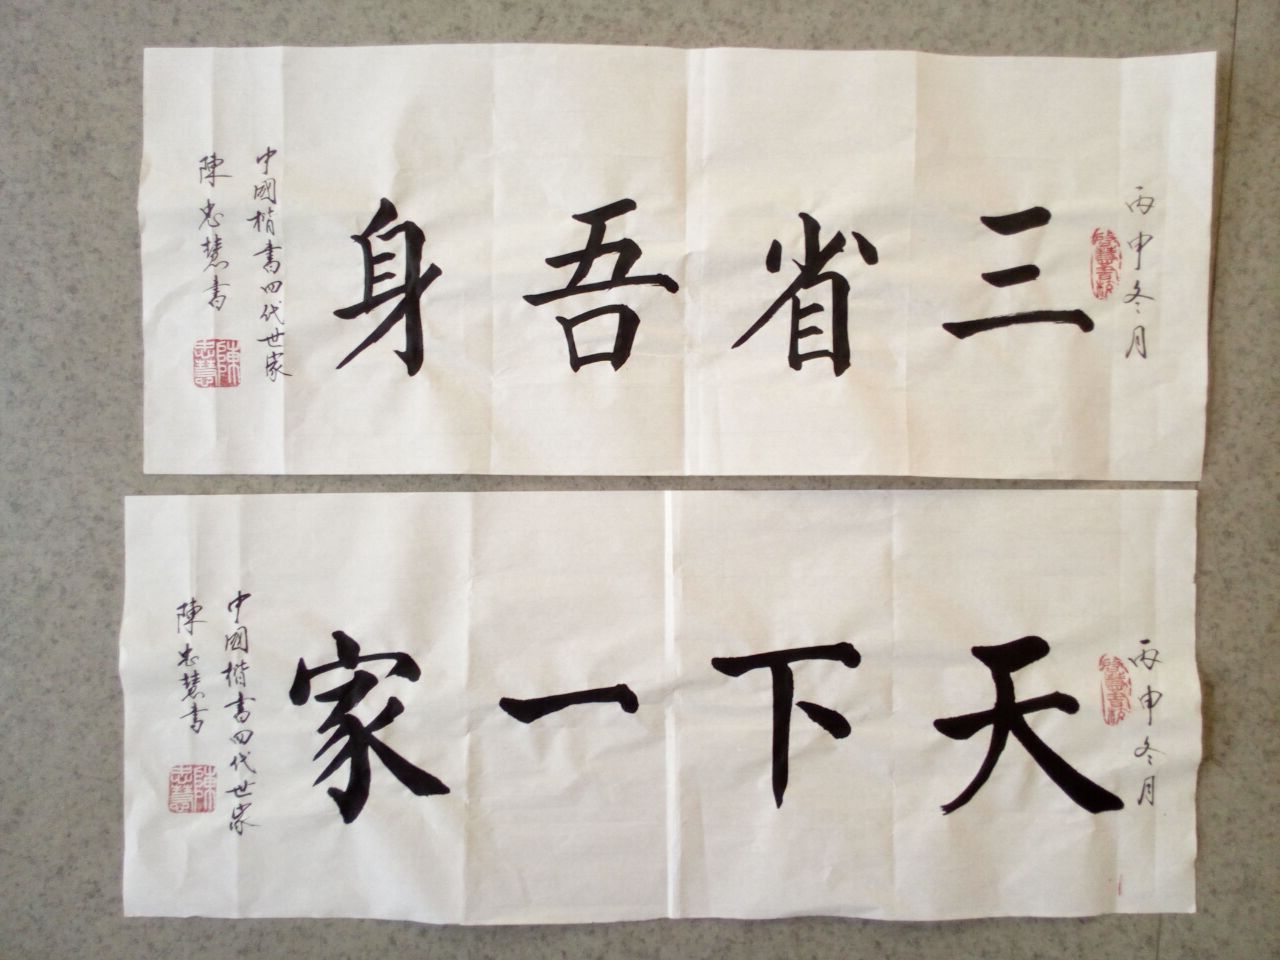 丙申冬月
三省吾身
中國楷書四代世家
陳忠慧書
陳忠慧
丙申冬月
天下一家
中國楷書四代世家
陳忠慧书
陳忠慧